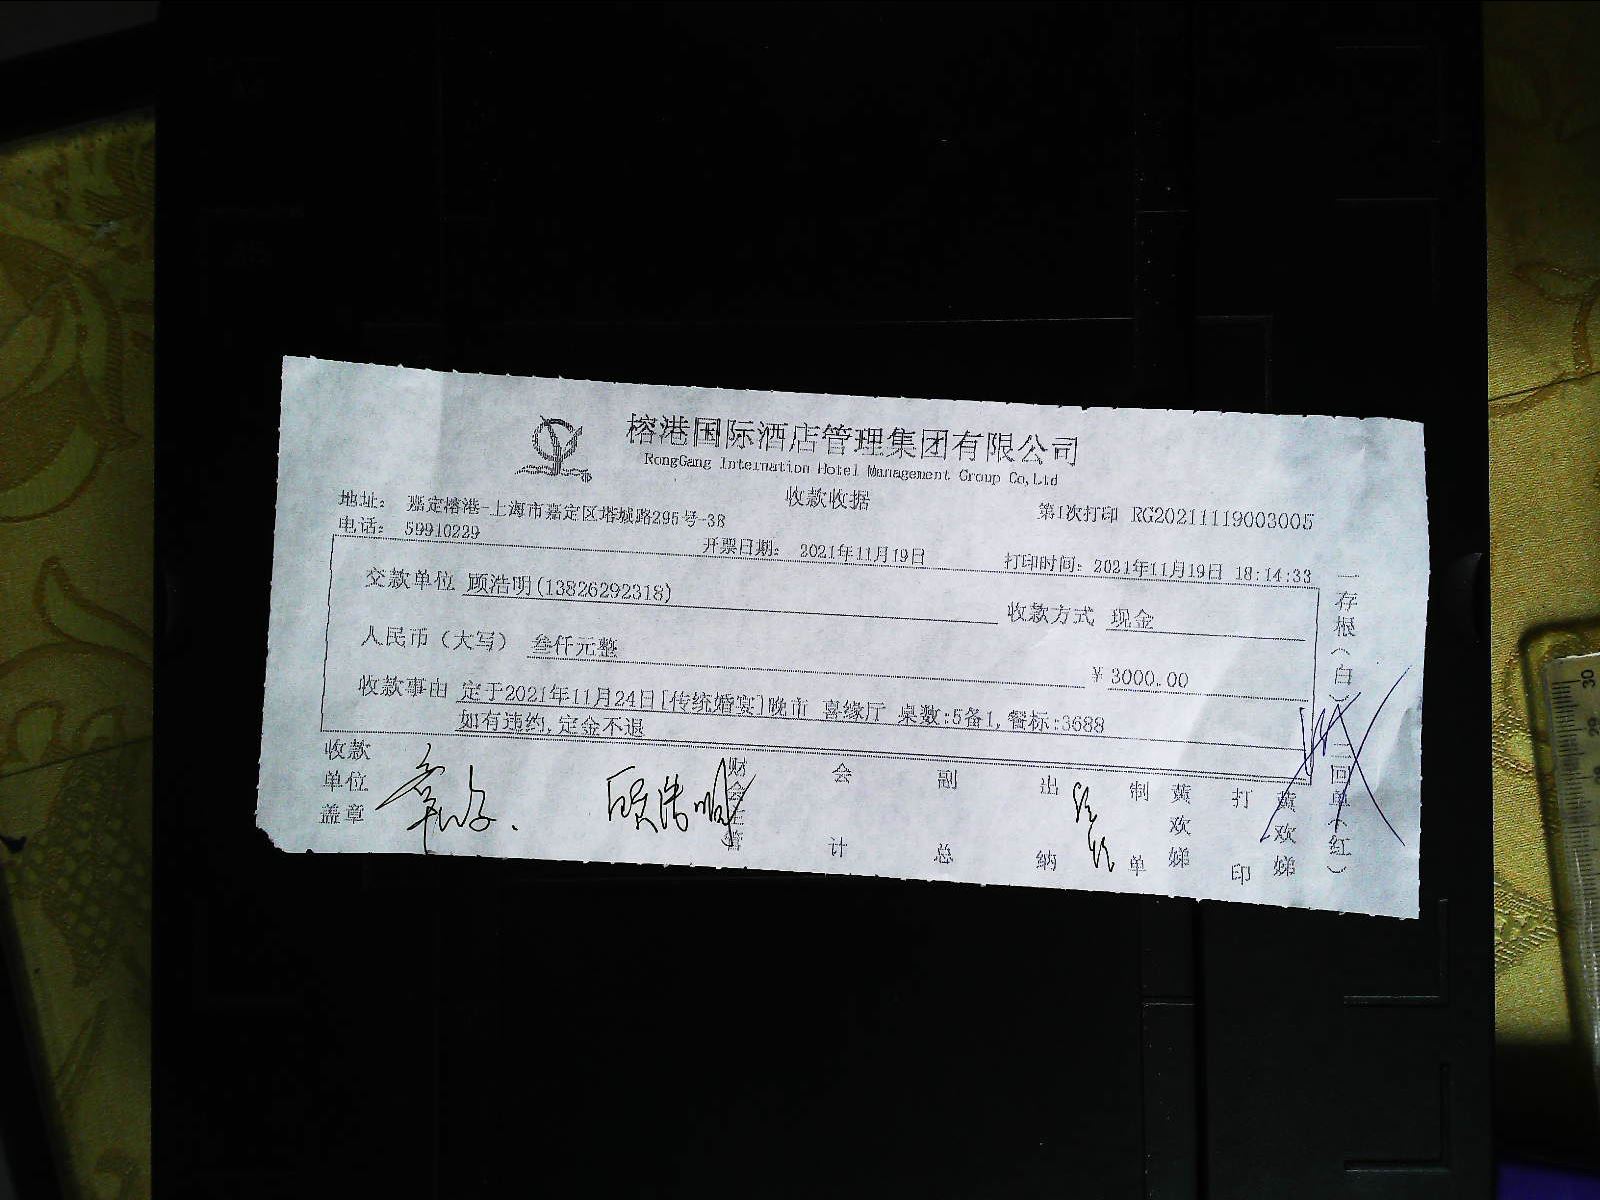 榕港国际酒店管理集团有限公司
RongGang Internation Hotel Management Group Co,Ltd
收款收据
地址： 嘉定榕港-上海市嘉定区塔城路295号-38
第1次打印 RG20211119003005
电话： 59910229
开票日期： 2021年11月19日
打印时间：2021年11月19日 18:14:33
交款单位 顾浩明(13826292318)
收款方式 现金
人民币（大写） 叁仟元整
￥3000.00
收款事由 定于2021年11月24日[传统婚宴]晚市 喜缘厅 桌数:5备1,餐标:3688
如有违约,定金不退
收款单位盖章
顾浩明
财会主管
会计
副总
出纳
制单 黄欢娣
打印 黄欢娣
一存根（白）二回单（红）